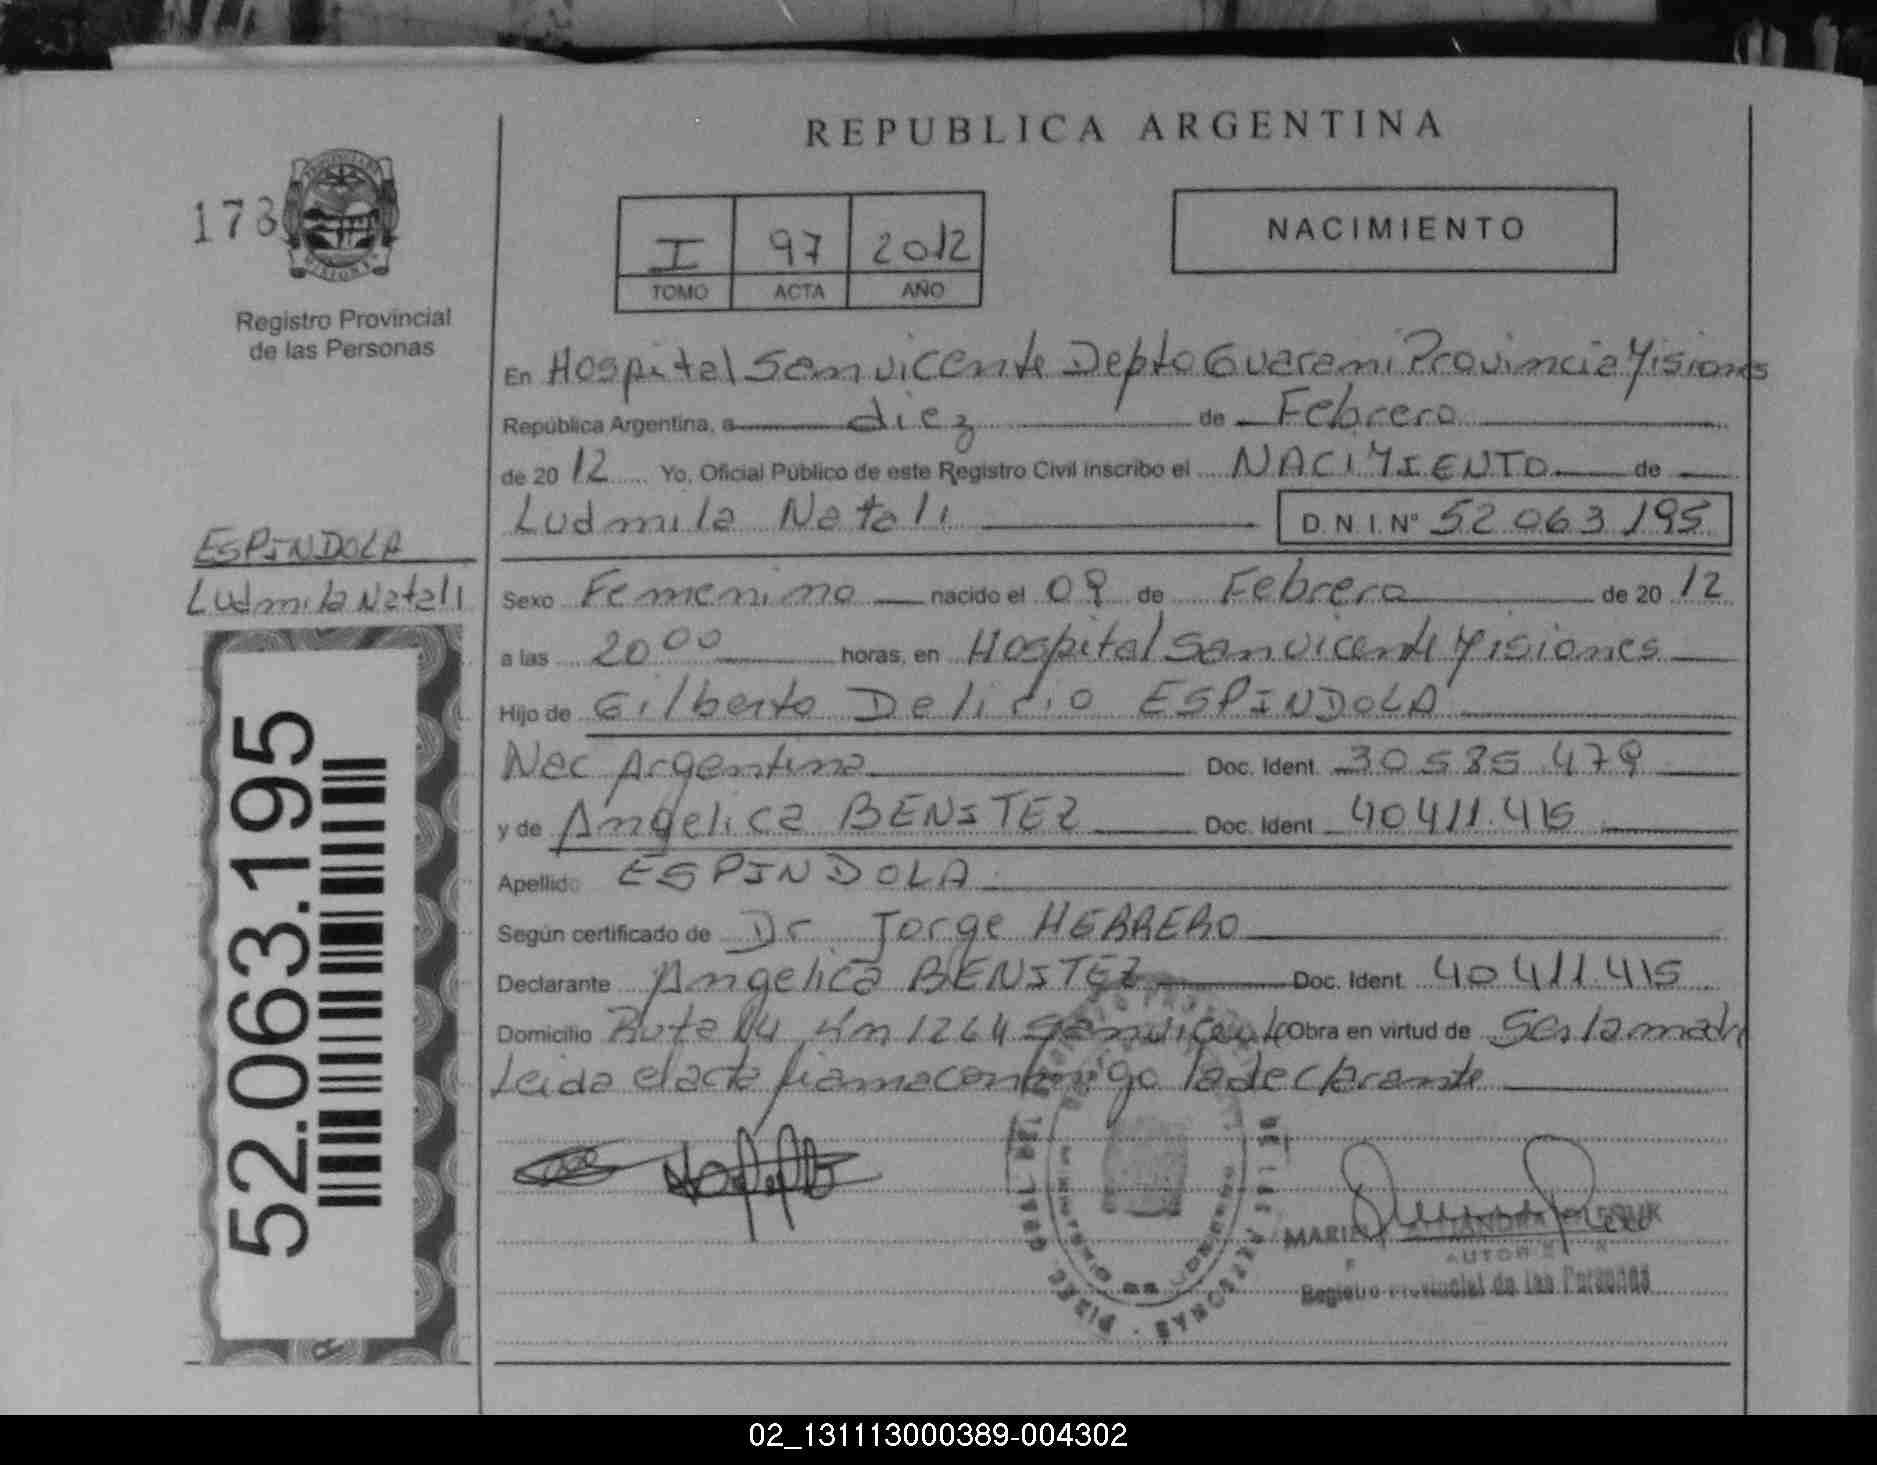 REPUBLICA ARGENTINA
173
Registro Provincial
de las Personas
I 97 2012
TOMO ACTA AÑO
NACIMIENTO
En Hospital San vicente Depto Guarani Provincia Misiones
República Argentina, a diez de Febrero
de 20 12 Yo, Oficial Público de este Registro Civil inscribo el NACIMIENTO de
Ludmila Natali D.N.I.Nº 52 063 195
ESPINDOLA
Ludmila Natali
Sexo Femenino nacido el 09 de Febrero de 20 12
a las 20 00 horas, en Hospital San vicente Misiones
Hijo de Gilberto Delicio ESPINDOLA
Nac Argentina Doc. Ident. 30 585 479
y de Angelica BENITEZ Doc. Ident 40 411.415
Apellido ESPINDOLA
Según certificado de Dr Jorge HERRERO
Declarante Angelica BENITEZ Doc. Ident. 40 411.415
Domicilio Ruta 14 Km 1264 San vicente Obra en virtud de Ser la madre
Leida el acta firma conmigo la declarante
52.063.195
DE LAS PERSONAS
ALEJANDRA
Registro Provincial de las Personas
02_131113000389-004302